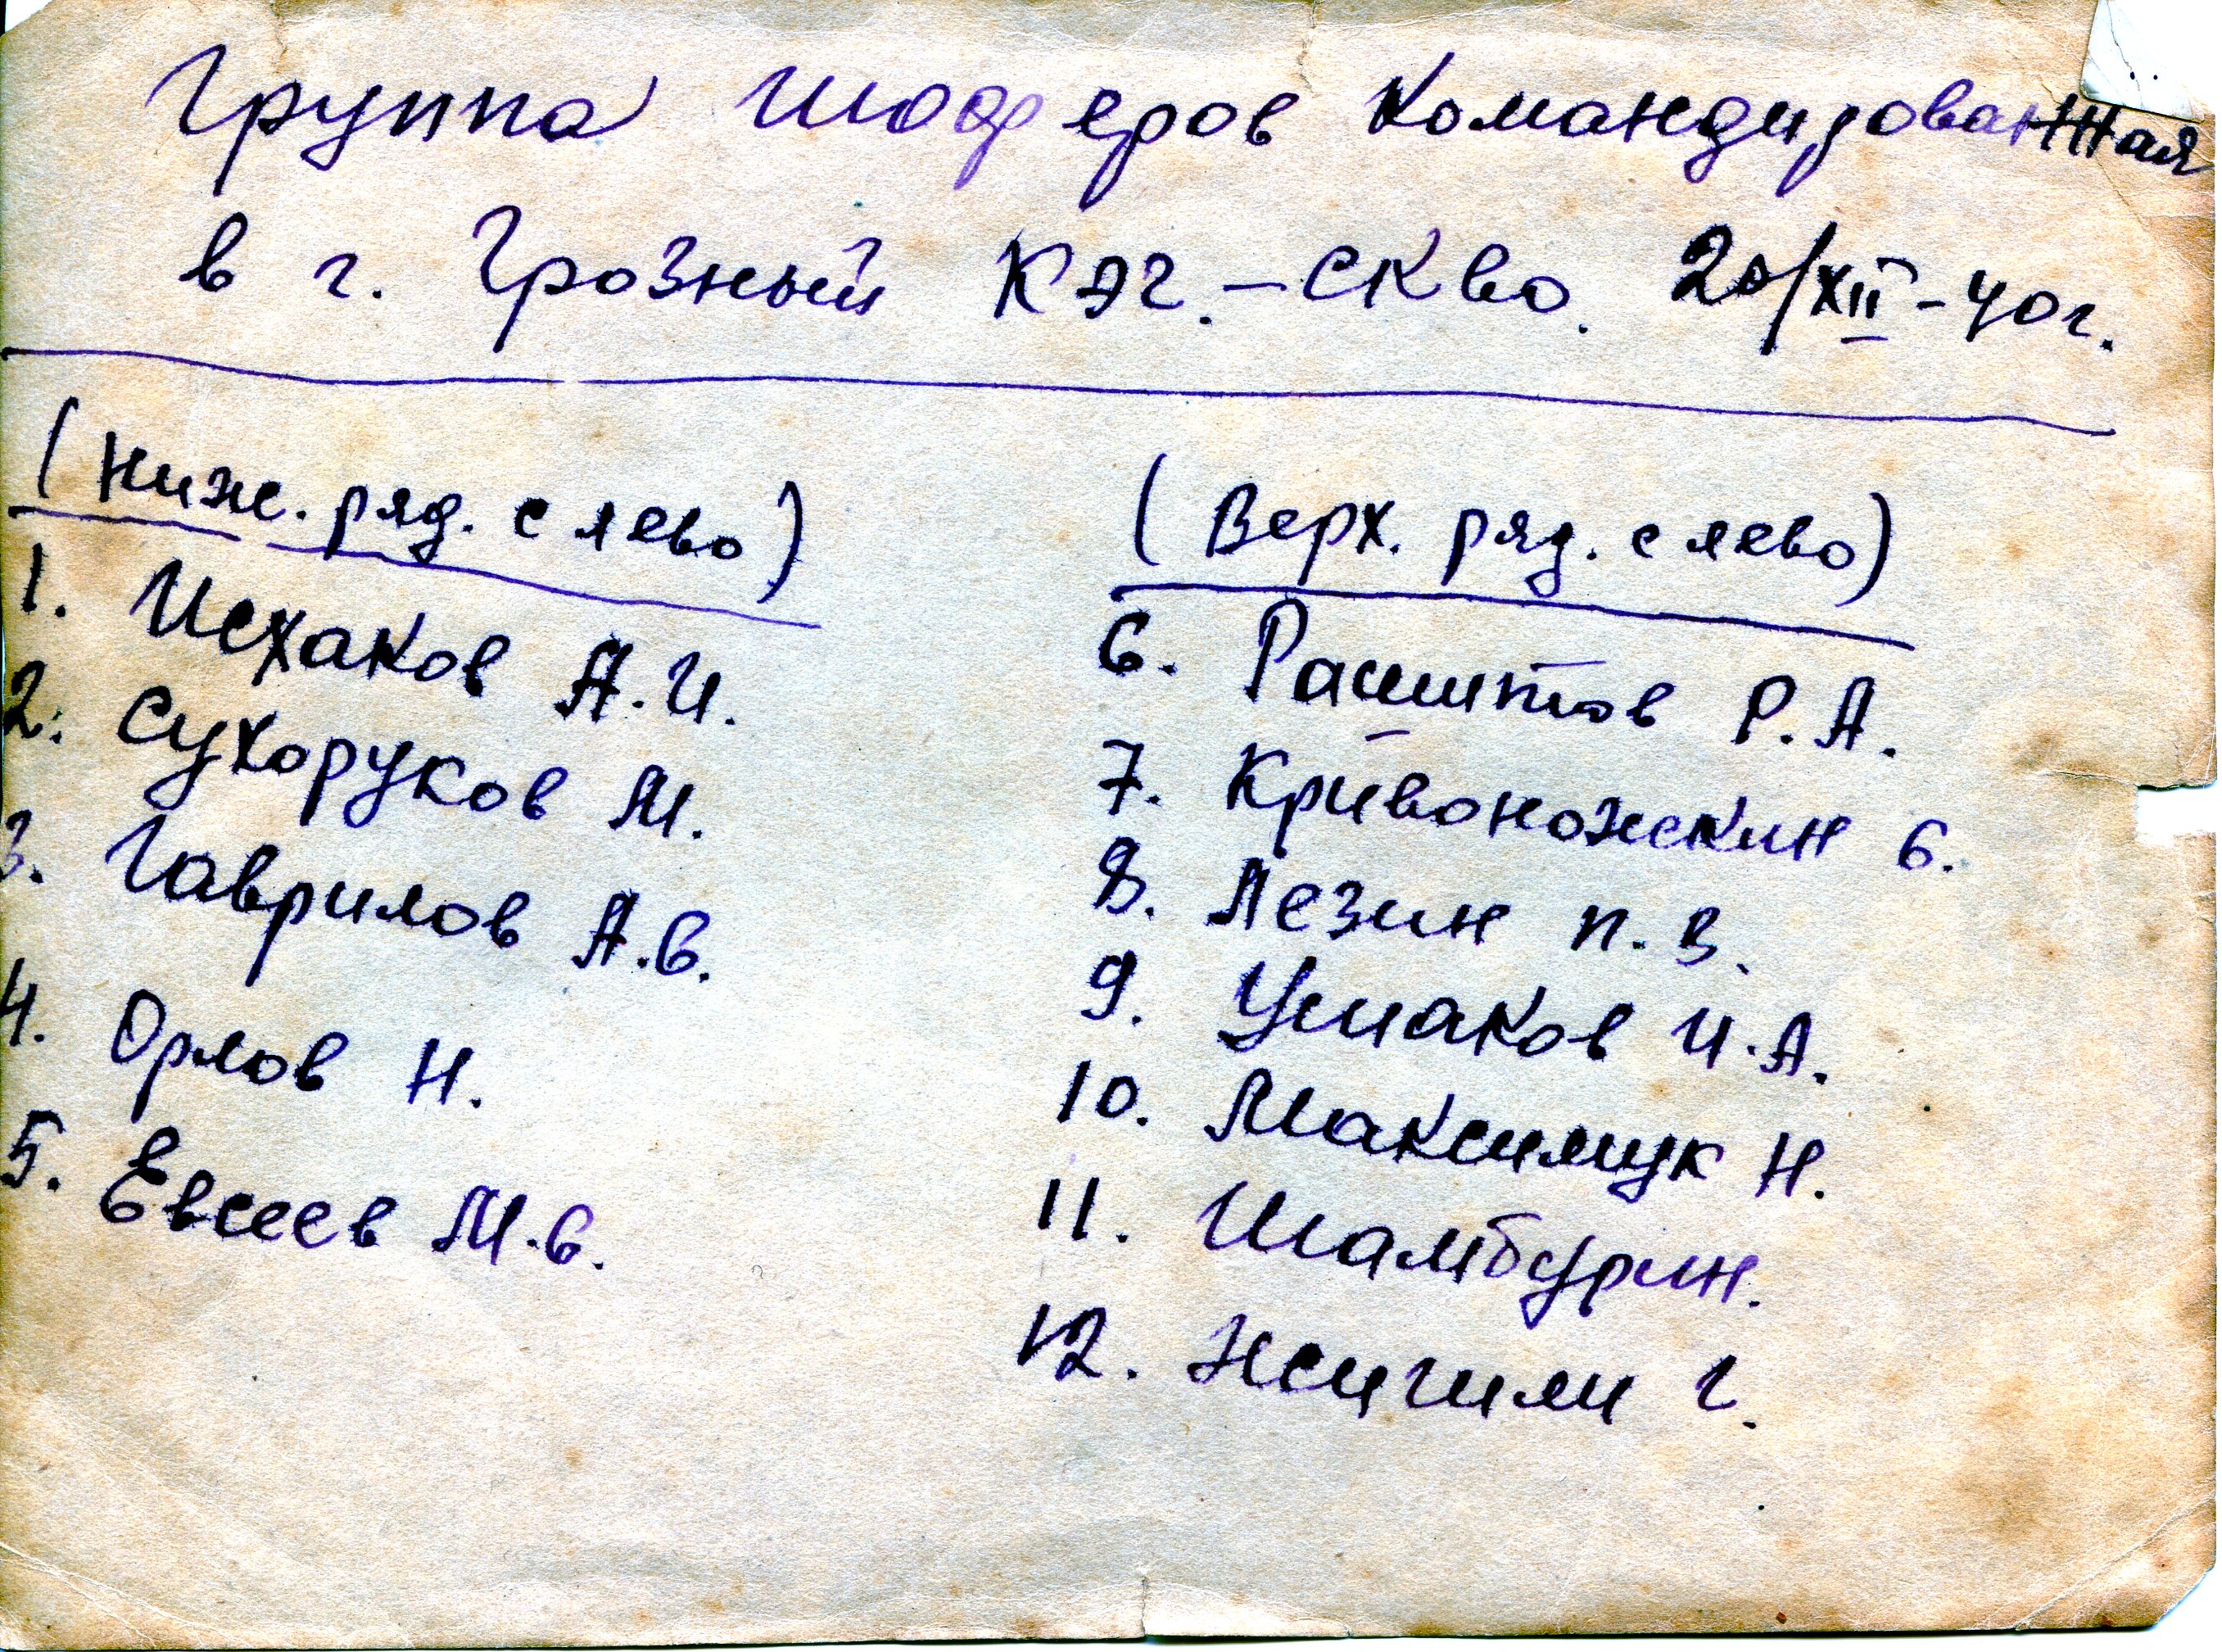 Группа шофёров командированная
в г. Грозный КЭЧ. - СКВО. 20/XII - 40 г.
(Ниж. ряд. с лево)
1. Исхаков А.И.
2. Сухоруков М.
3. Гаврилов А.В.
4. Орлов Н.
5. Евсеев М.В.
(Верх. ряд. с лево)
6. Р.А.
7. Кривоножкин В.
8. Лезин П.В.
9. Ушаков И.А.
10. Максимук Н.
11. Шамбурин.
12. Жигили Г.